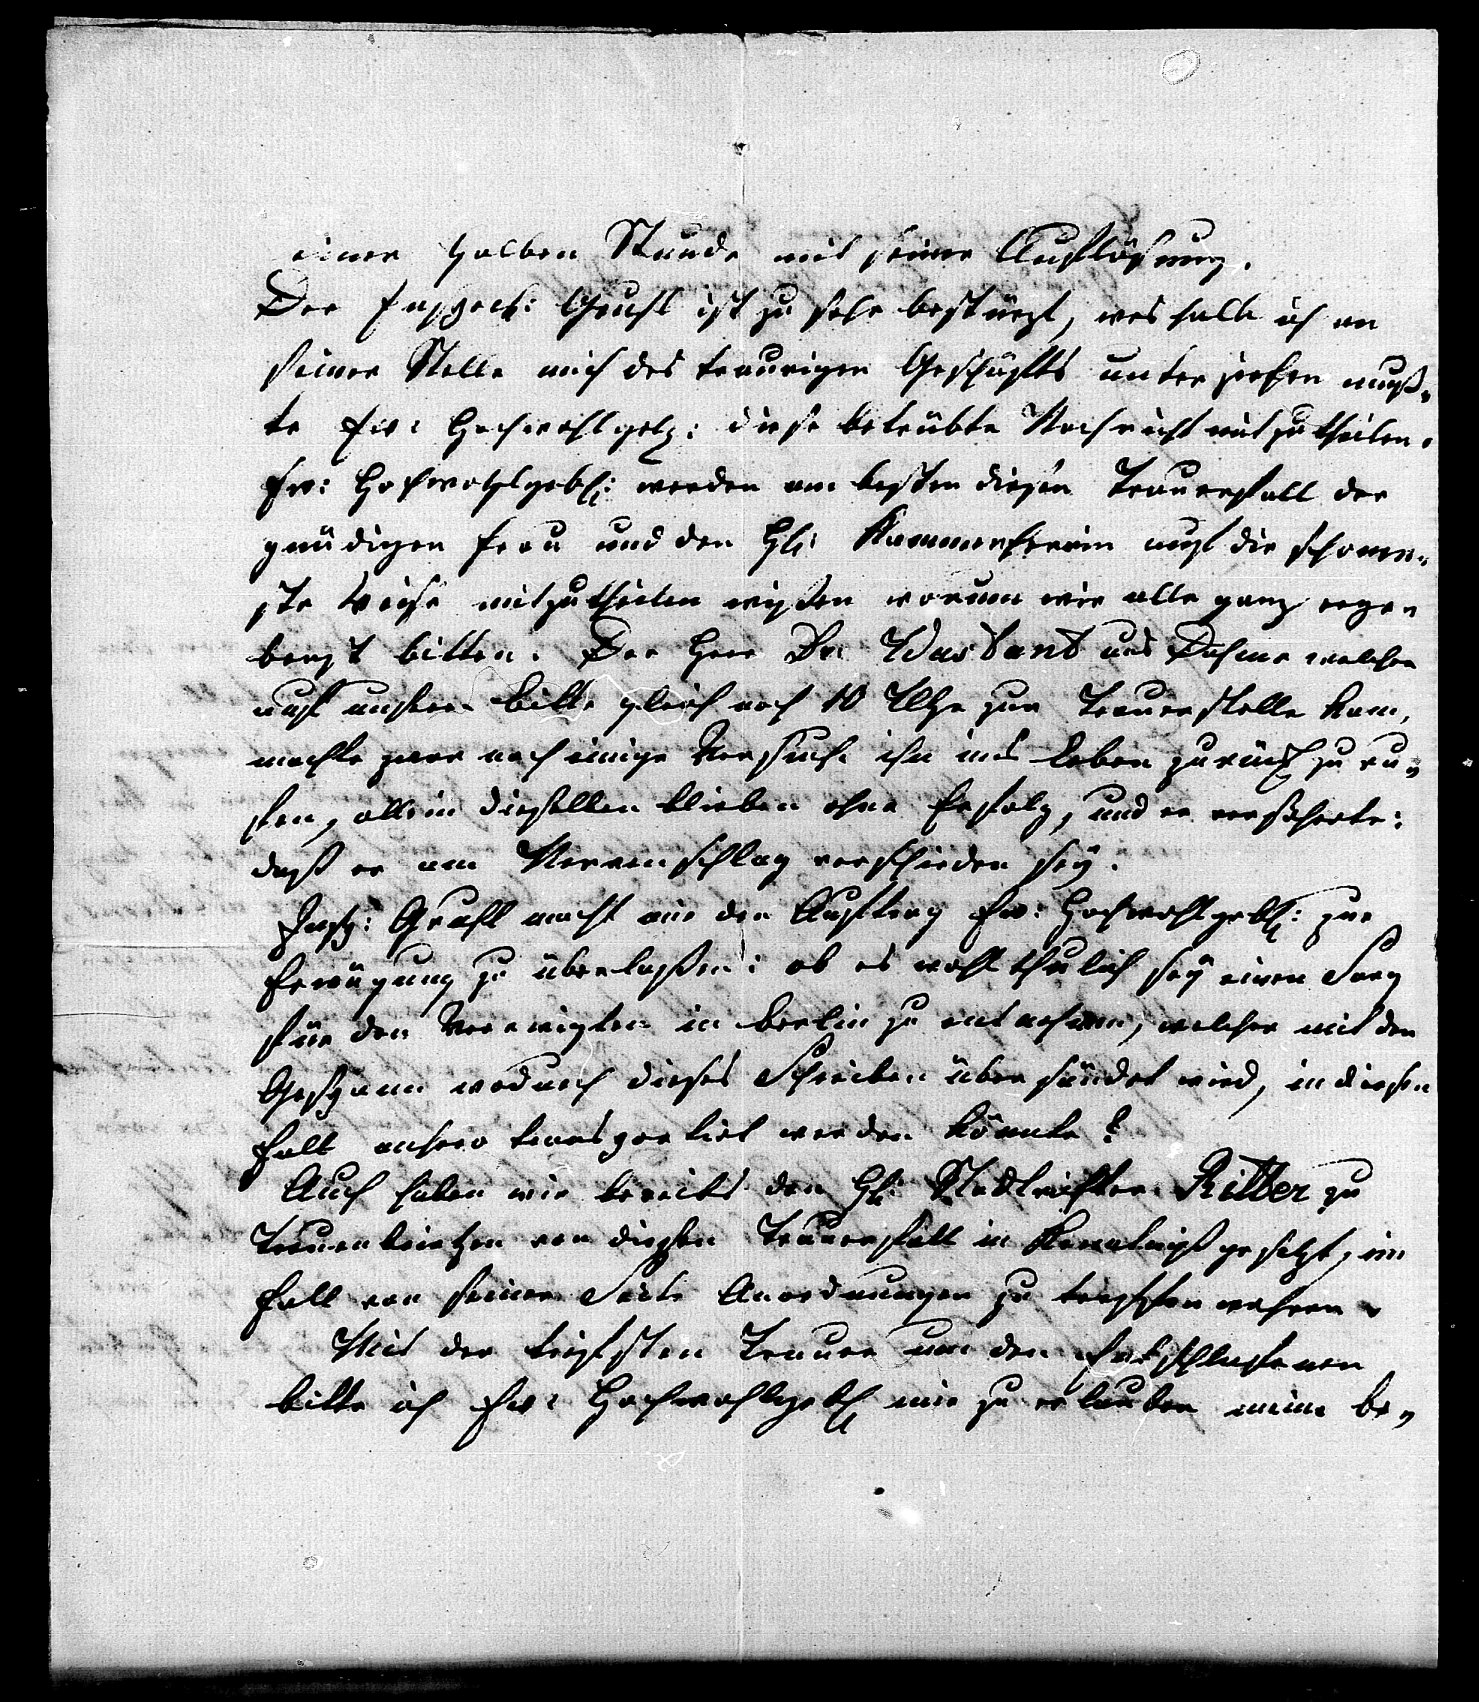 einer halben Stunde mit seiner Auflösung.
Der Inspect: Gruhl ist zu sehr bestürzt, weshalb ich an
seiner Stelle mich des traurigen Geschäfts unterziehen muß-
te Ew: Hochwohlgeb: diese betrübte Nachricht mitzutheilen.
Ew: Hochwohlgeb: werden am besten diesen Trauerfall der
gnädigen Frau und den H: Kammerherrn auf die schonen-
ste Weise mitzutheilen wißen warum wir alle ganz erge-
benst bitten. Der Herr Dr: aus Dahme welcher
auf unsere Bitte gleich nach 10 Uhr zur Trauerstelle kam,
machte zwar noch einige Versuche ihn ins Leben zurück zu ru-
fen, allein dieselben blieben ohne Erfolg, und er versicherte:
daß er am Nervenschlag verschieden sey.
Insp: Gruhl macht mir den Auftrag Ew: Hochwohlgeb: zur
Erwägung zu überlaßen: ob es wohl thulich sey einen Sarg
für den Verewigten in Berlin zu entnehmen, welcher mit den
Gespann wodurch dieses Schreiben übersändet wird, in diesen
Fall anhero transportirt werden könnte?
Auch haben wir bereits den H: Stadtrichter Ritter zu
Treuenbrietzen von diesen Trauerfall in Kenntniß gesetzt, im
Fall von seiner Seite Anordnungen zu treffen wären.
Mit der tiefsten Trauer um den Entschlafenen
bitte ich Ew: Hochwohlgeb mir zu erlauben meine be-